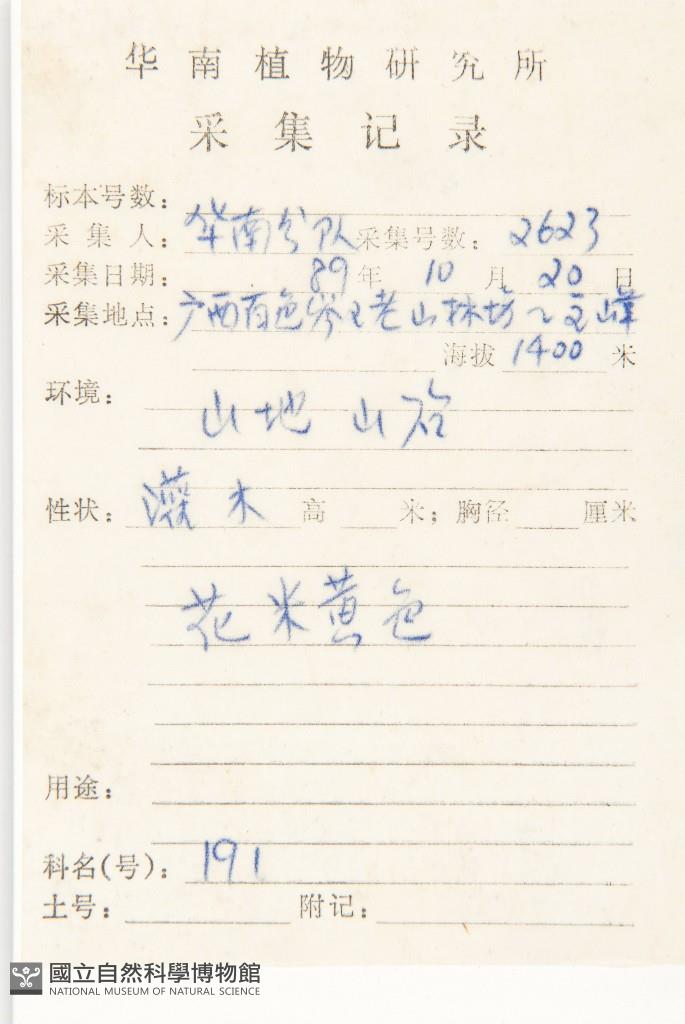 华南植物研究所
采集记录
标本号数：
采集人：华南分队 采集号数：2623
采集日期： 89年 10月 20日
采集地点：广西百色岑王老山林场
海拔 1400 米
环境：
山地 山谷
性状：灌木 高 米；胸径 厘米
花米黄色
用途：
科名(号)：191
土号： 附记：
國立自然科學博物館
NATIONAL MUSEUM OF NATURAL SCIENCE